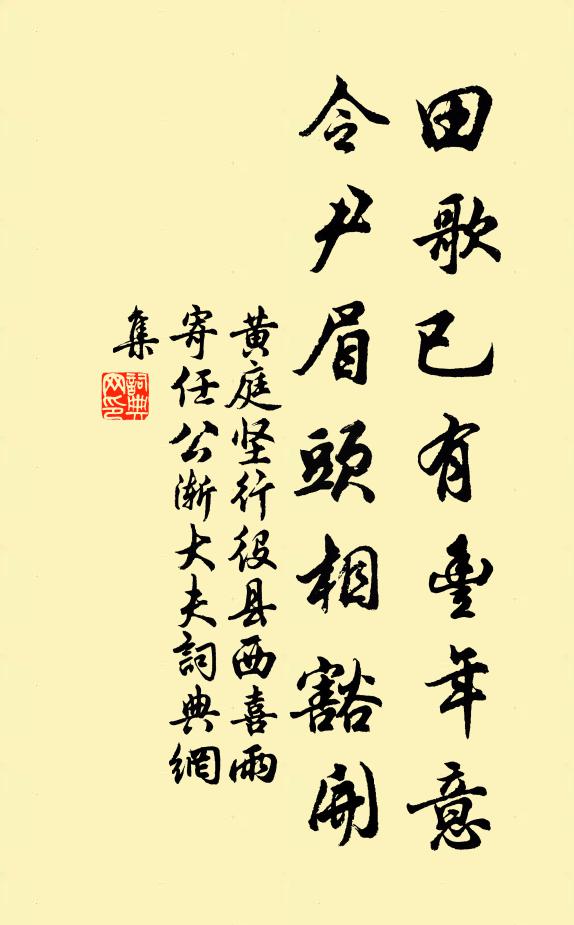 田歌已有豐年意
令尹眉頭相豁開
黄庭坚行役县西喜雨
寄任公渐大夫詞典網
集
詞典
网印